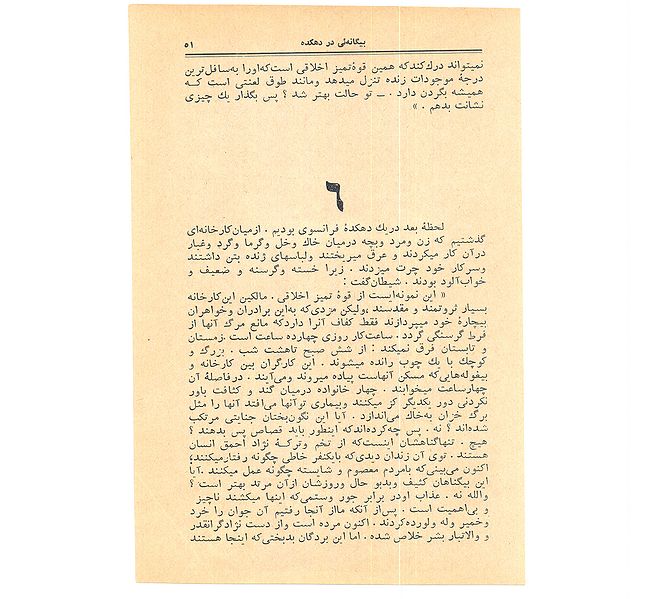 بیگانه‌ئی در دهکده
۵۱
نمیتواند درک‌کندکه همین قوهٔ تمیز اخلاقی است‌که‌اورا به‌سافل‌ترین
درجهٔ موجودات زنده تنزل میدهد ومانند طوق لعنتی است کـه
همیشه بگردن دارد . ــ تو حالت بهتر شد ؟ پس بگذار یك چیزی
نشانت بدهم . »
٦
لحظهٔ بعد دریك دهکدهٔ فرانسوی بودیم . ازمیان‌کارخانه‌ای
گذشتیم که زن ومرد وبچه درمیان خاك وخل وگرما وگرد وغبار
درآن کار میکردند و عرق میریختند ولباسهای ژنده بتن داشتند
وسرکار خود چرت میزدند . زیرا خسته وگرسنه و ضعیف و
خواب‌آلود بودند . شیطان‌گفت :
« این نمونه‌ایست از قوهٔ تمیز اخلاقی . مالکین این‌کارخانه
بسیار ثروتمند و مقدسند ،ولیکن مزدی‌که به‌این برادران وخواهران
بیچارهٔ خود میپردازند فقط کفاف آنرا داردکه مانع مرگ آنها از
فرط گرسنگی گردد . ساعت‌کار روزی چهارده ساعت است .زمستان
و تابستان فرق نمیکند : از شش صبح تاهشت شب . بزرگ و
کوچك با یك چوب رانده میشوند . این کارگران بین کارخانه و
بیغوله‌هایی‌که مسکن آنهاست پیاده میروند ومی‌آیند . درفاصلهٔ آن
چهارساعت میخوابند . چهار خانواده درمیان گند و کثافت باور
نکردنی دور یکدیگر کز میکنند وبیماری توآنها می‌افتد آنها را مثل
برگ خزان به‌خاك می‌اندازد . آیا این نگون‌بختان جنایتی مرتکب
شده‌اند ؟ نه . پس چه‌کرده‌اندکه اینطور باید قصاص پس بدهند ؟
هیچ . تنهاگناهشان اینست‌که از تخم وترکـهٔ نژاد احمق انسان
هستند . توی آن زندان دیدی‌که بایکنفر خاطی چگونه رفتارمیکنند،
اکنون می‌بینی‌که بامردم معصوم و شایسته چگونه عمل میکنند .آیا
این بیگناهان کثیف وبدبو حال وروزشان ازآن مرتد بهتر است ؟
والله نه . عذاب اودر برابر جور وستمی‌که اینها میکشند ناچیز
و بی‌اهمیت است . پس‌از آنکه مااز آنجا رفتیم آن جوان را خرد
وخمیر وله ولورده‌کردند . اکنون مرده است واز دست نژادگرانقدر
و والاتبار بشر خلاص شده . اما این بردگان بدبختی‌که اینجا هستند